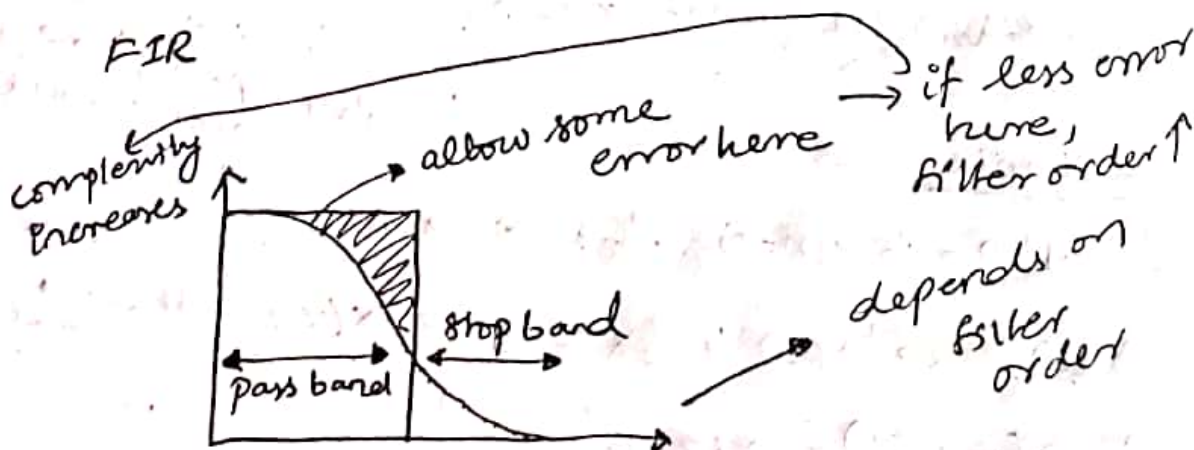 FIR
complexity
increases
allow some
error here
→ if less error
here,
filter order ↑
pass band
stop band
depends on
filter
order